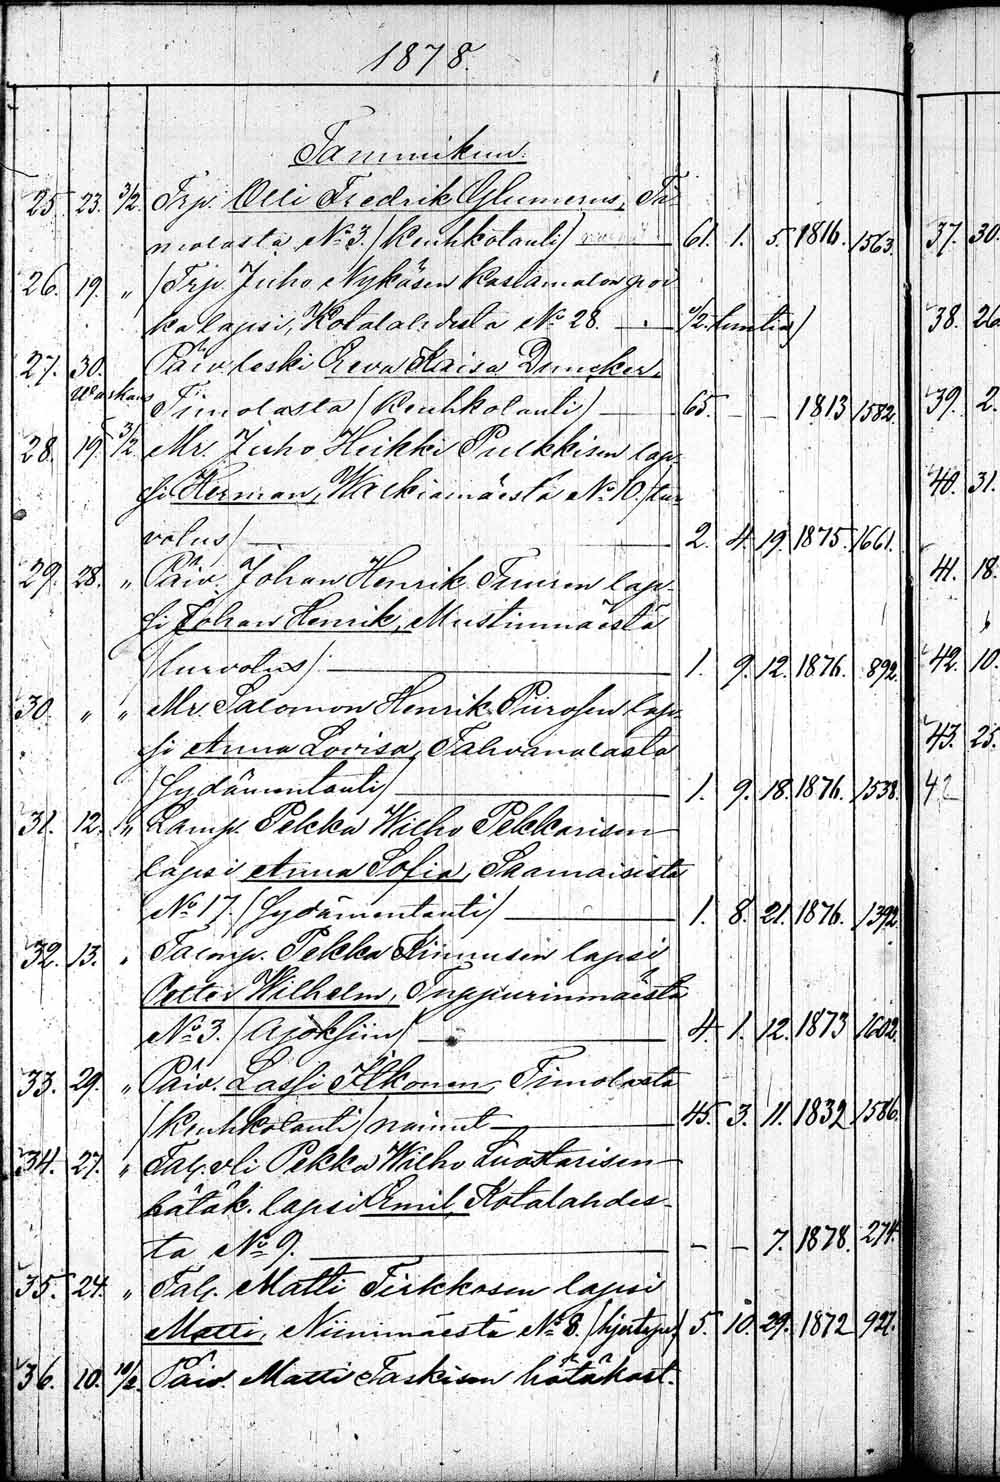 1878.
Tammikuu.
25. 23. 3/2. Trp. Olli Fredrik Glumerus, Ti-
molasta No 3. /Keuhkotauti/ 61. 1. 5. 1816. 1563.
26. 19. " /Trp. Juho Nykäsen kaslamaton poi
ka lapsi, Kotalahdesta No 28. 1/2 tuntia/
27. 30. Päiv. leski Eeva Kaisa Duncker,
Timolasta /Keuhkotauti/ 65. - - 1813 1582.
28. 19. 3/2. Mr. Juho Heikki Pulkkisen lap-
si Herman, Walkiamäestä No 10. /tur-
votus/ 2. 4. 19. 1875. 1661.
29. 28. " Päiv. Johan Henrik Tuuren lap-
si Johan Henrik, Mustinmäestä
/turvotus/. 1. 9. 12. 1876. 892.
30. " " Mr. Salomon Henrik Piirosen lap-
si Anna Lovisa, Tahvanalasta
/Sydämentauti/ 1. 9. 18. 1876. 1538.
31. 12. " Lamp. Pekka Wilho Pekkarisen
lapsi Anna Sofia, Saamaisista
No 17. /Sydämentauti/ 1. 8. 21. 1876. 1392.
32. 13. " Talonp. Pekka Kinnusen lapsi
Petter Wilhelm, Tuppurinmäestä
No 3. /Ajoksiin/ 4. 1. 12. 1873 1602.
33. 29. " Päiv. Lassi Ilkonen, Timolasta
/Keuhkotauti/ nainut 45. 3. 11. 1832 1586.
34. 27. " Tal. vli Pekka Wilho Luostarisen
hätäk. lapsi Emil, Kotalahdes-
ta No 9. - - 7. 1878. 274.
35. 24. " Tal. Matti Tirkkosen lapsi
Matti, Niinimäestä No 8. 5. 10. 29. 1872 927.
36. 10. 10/2. Päiv. Matti Taskisen hätäkast.
37. 30.
38. 26
39. 2.
40. 31.
41. 18.
42. 10.
43. 25.
42